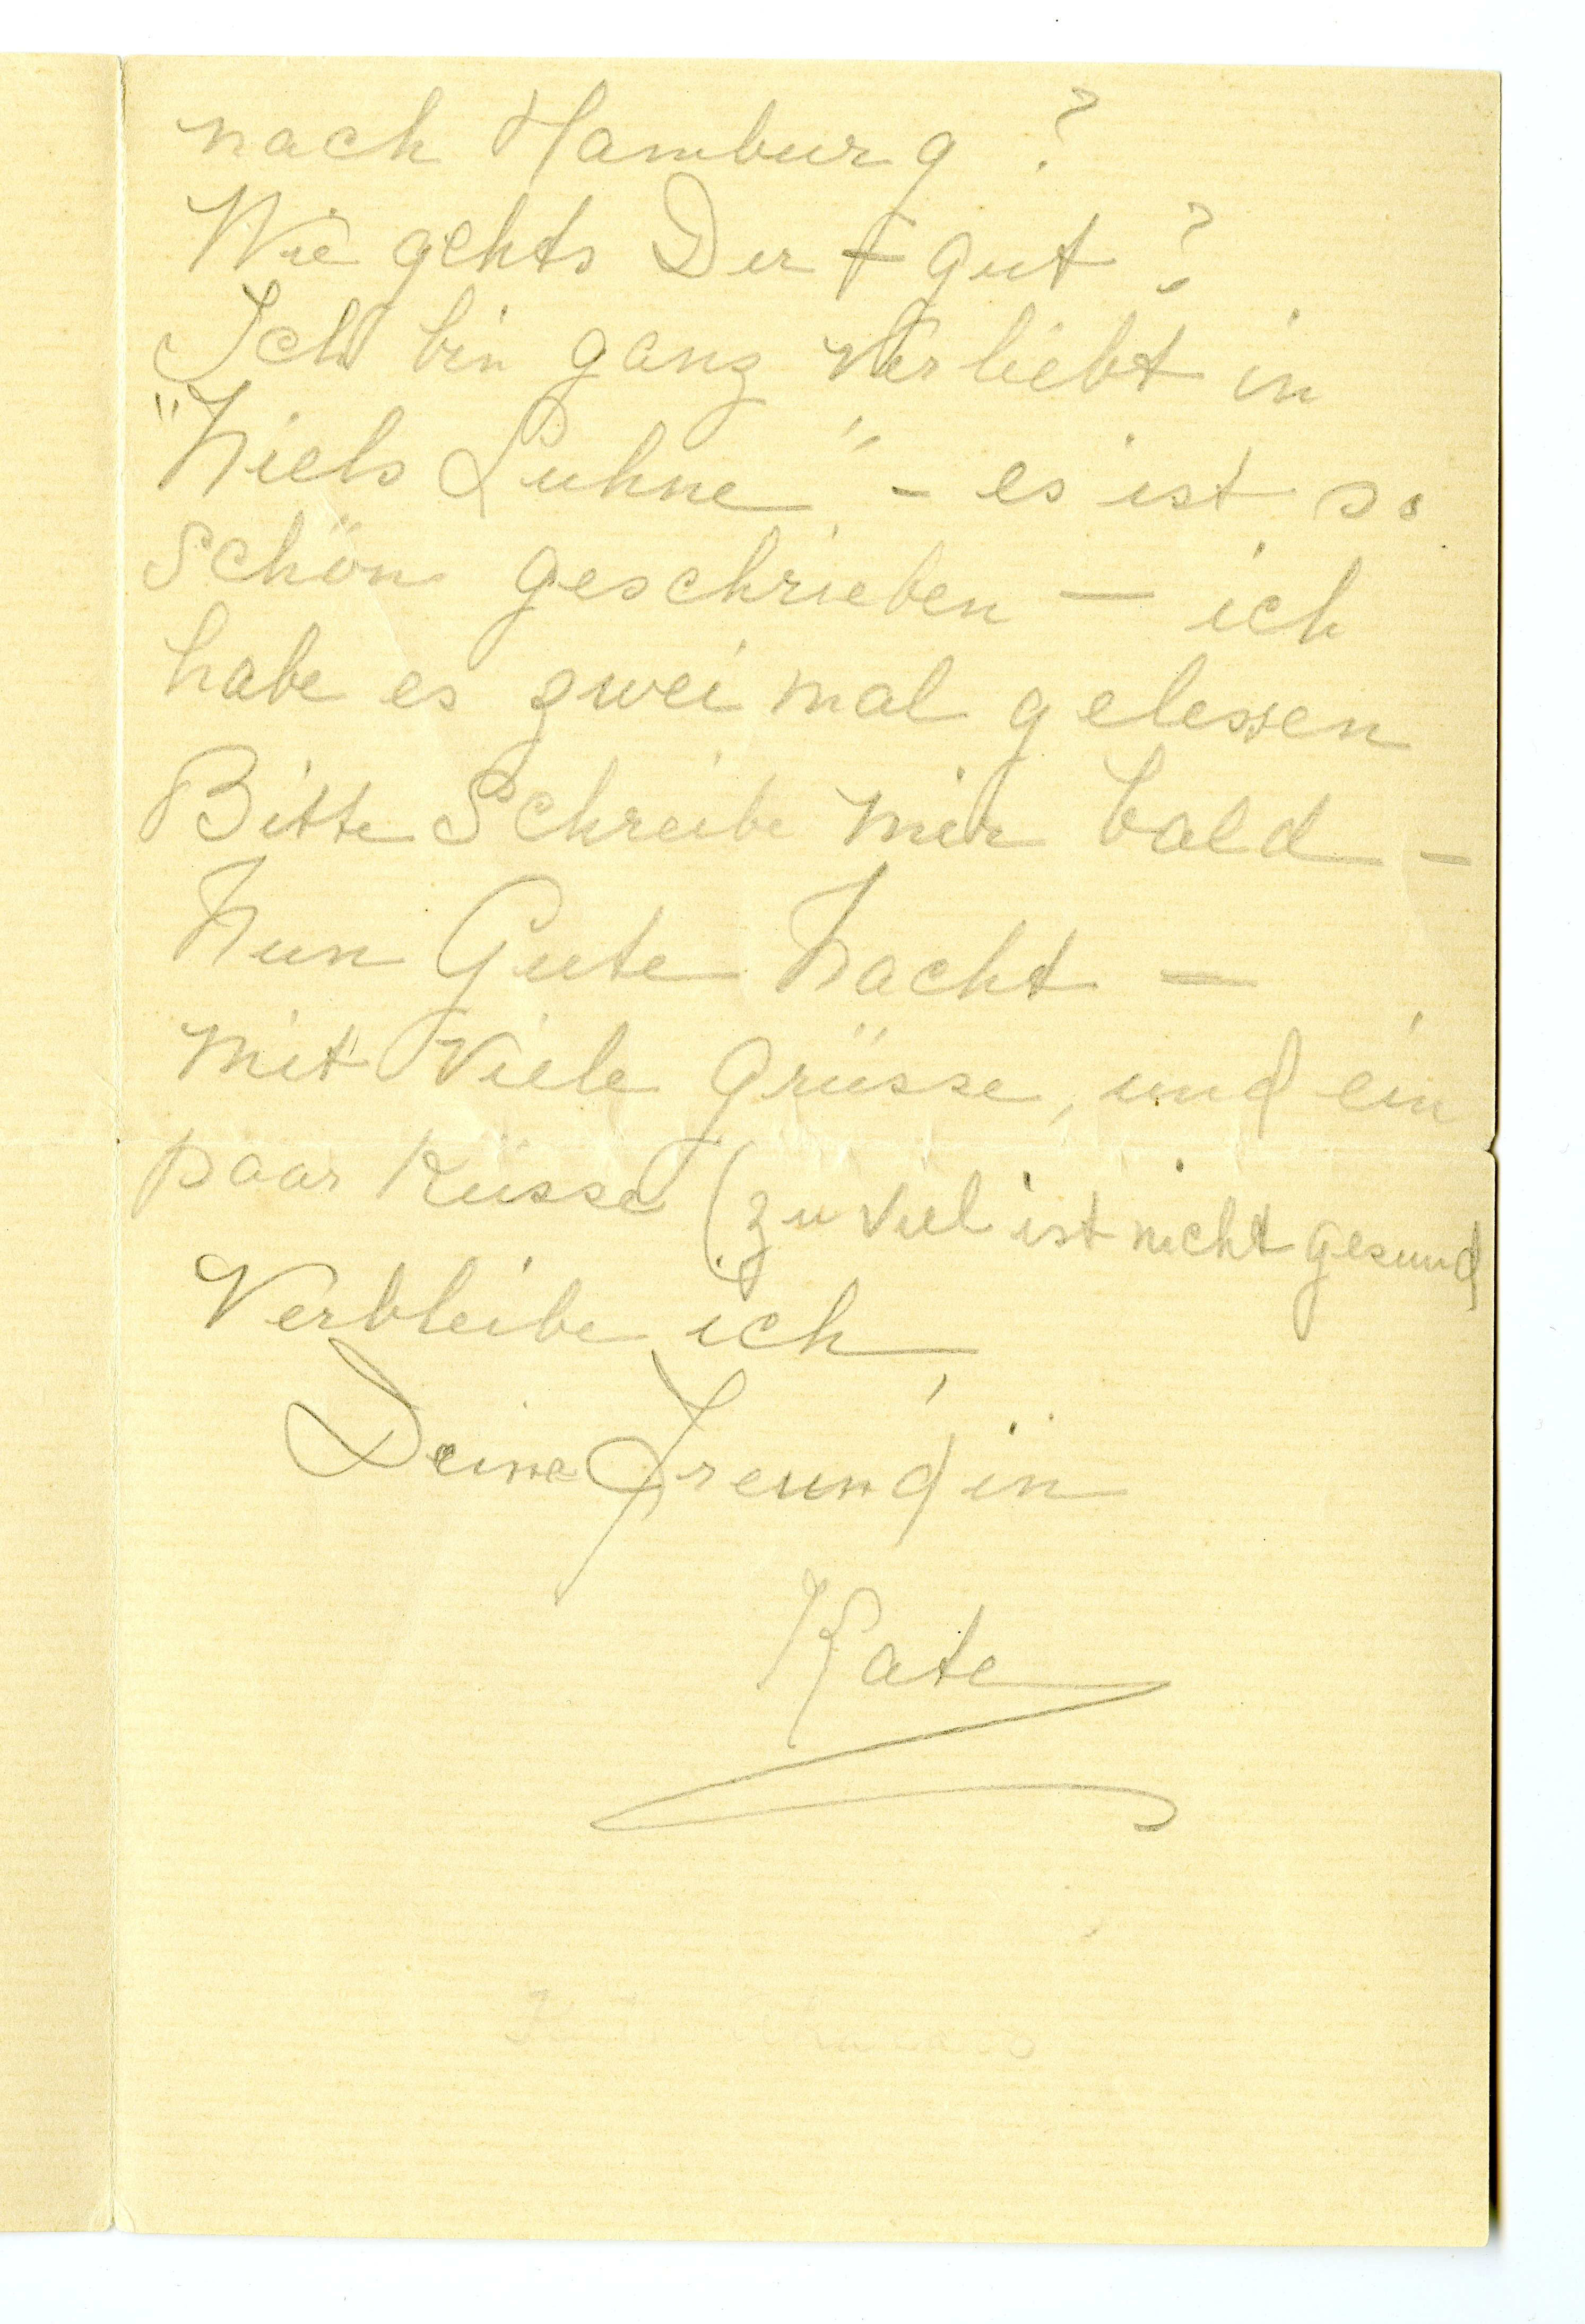 nach Hamburg?
Wie gehts Dir – gut?
Ich bin ganz verliebt in
"Niels Luhne" – es ist so
schön geschrieben – ich
habe es zwei mal gelessen
Bitte Schreibe mir bald –
Nun Gute Nacht –
mit Viele Grüsse, und ein
paar Küsse (zu viel ist nicht gesund)
Verbleibe ich,
Deine Freundin
Kate